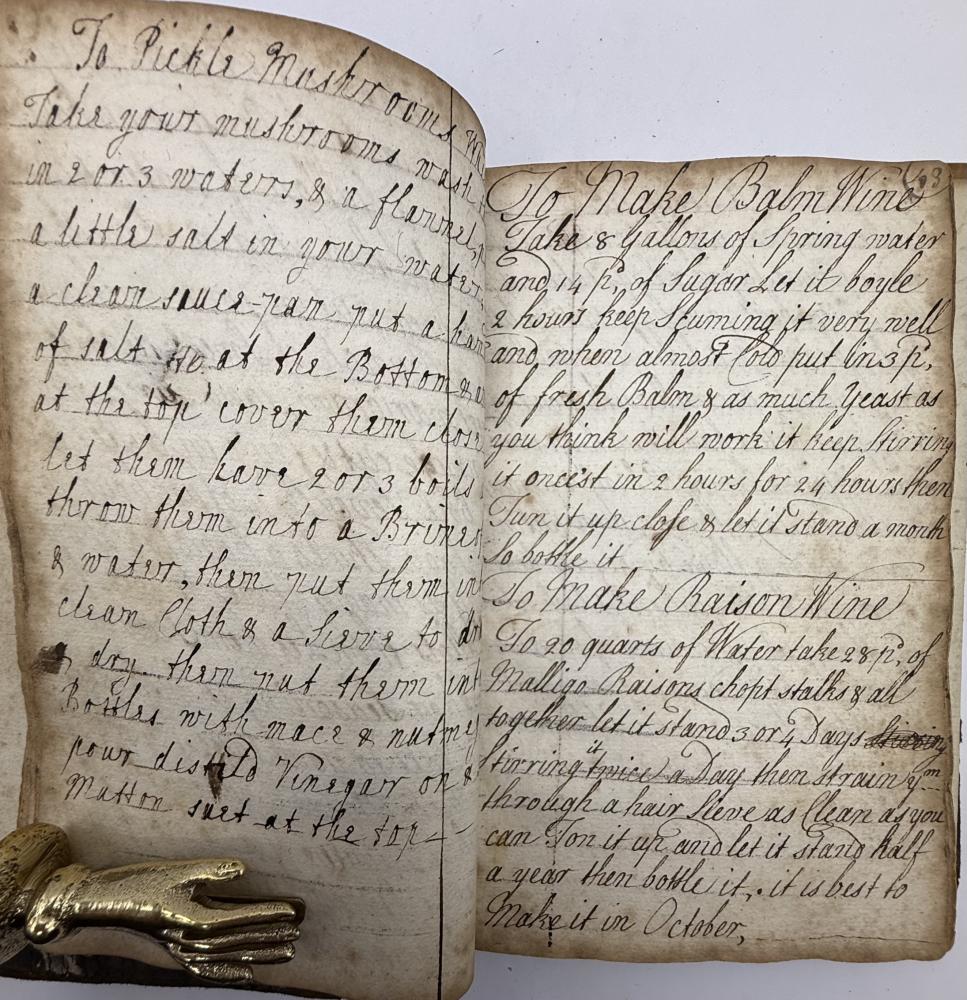 To Pickle Mushrooms
Take your mushrooms wash
in 2 or 3 waters, & a flannel,
a little salt in your water
a clean sauce-pan put a
of salt at the Bottom &
at the top cover them close
let them have 2 or 3 boils
throw them into a Brine
& water, then put them in
clean Cloth & a Sieve to
dry then put them
Bottles with mace &
pour distild Vinegar on &
Mutton suet at the top
63
To Make Balm Wine
Take 8 Gallons of Spring water
and 14 pd. of Sugar Let it boyle
2 hours keep Scuming it very well
and when almost Cold put in 3 pd.
of fresh Balm & as much Yeast as
you think will work it keep stirring
it oncest in 2 hours for 24 hours then
Tun it up close & let it stand a month
So bottle it
To Make Raison Wine
To 20 quarts of Water take 28 pd. of
Malligo Raisons chopt stalks & all
together let it stand 3 or 4 Days
stirring it twice a Day then strain ym
through a hair Sieve as Clean as you
can Ton it up and let it stand half
a year then bottle it, it is best to
Make it in October,